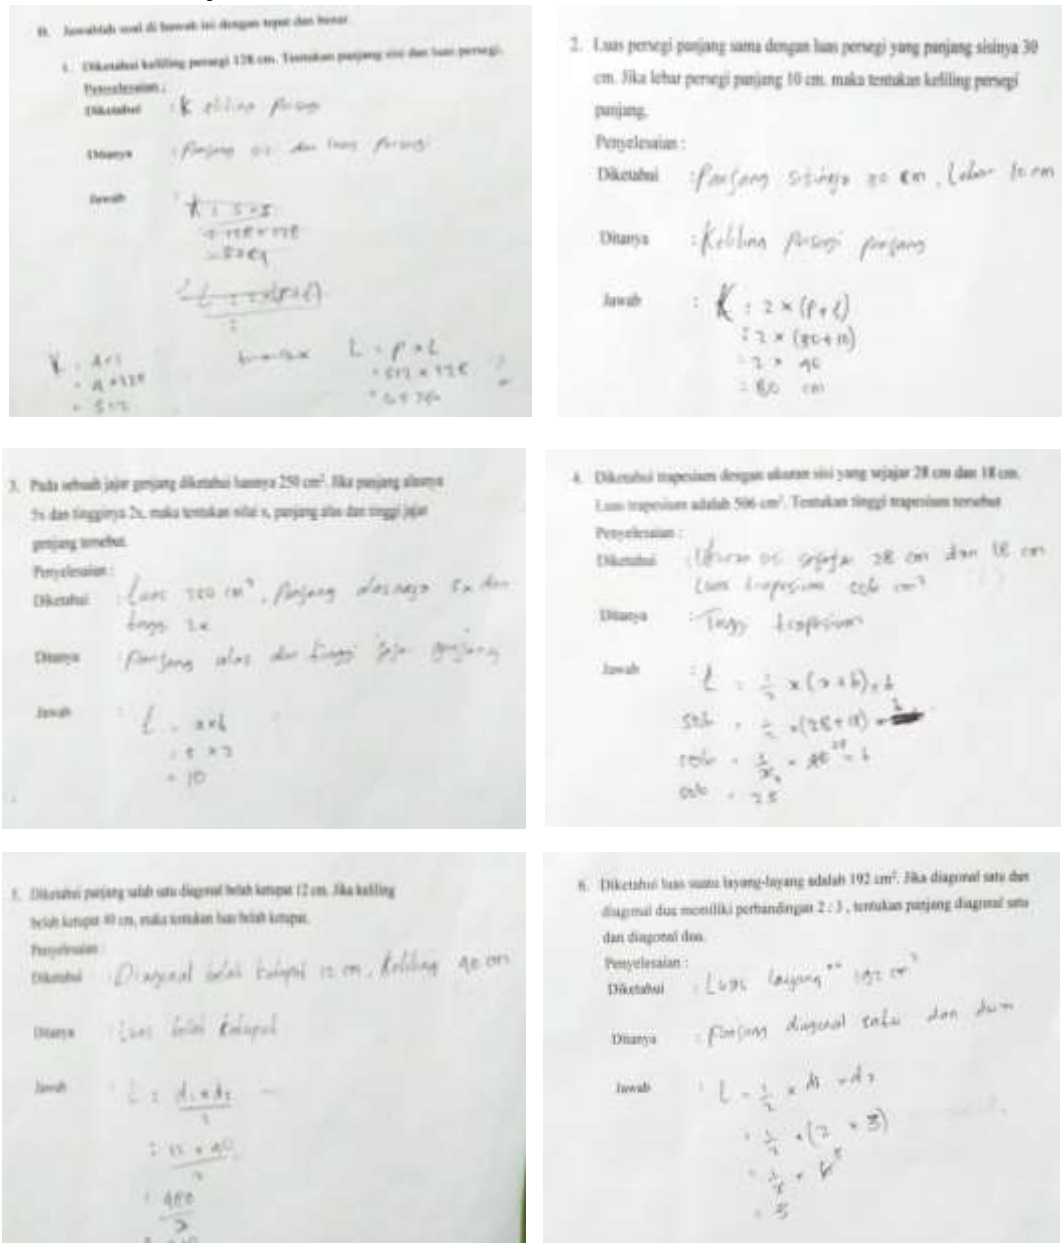 B. Jawablah soal di bawah ini dengan tepat dan benar
1. Diketahui keliling persegi 128 cm. Tentukan panjang sisi dan luas persegi.
Penyelesaian :
Diketahui : Keliling persegi
Ditanya : Panjang sisi dan luas persegi
Jawab :
K = 4 × s
= 4 × 128
= 512
L = p × l
= 512 × 128
2. Luas persegi panjang sama dengan luas persegi yang panjang sisinya 30
cm. Jika lebar persegi panjang 10 cm. maka tentukan keliling persegi
panjang.
Penyelesaian :
Diketahui : Panjang sisinya 30 cm, Lebar 10 cm
Ditanya : Keliling Persegi panjang
Jawab : K = 2 × (p + l)
= 2 × (30 + 10)
= 2 × 40
= 80 cm
3. Pada sebuah jajar genjang diketahui luasnya 250 cm². Jika panjang alasnya
5x dan tingginya 2x, maka tentukan nilai x, panjang alas dan tinggi jajar
genjang tersebut.
Penyelesaian :
Diketahui : Luas 250 cm², Panjang alasnya 5x dan
tinggi 2x
Ditanya : Panjang alas dan tinggi jajar genjang
Jawab : L = a × t
= 5 × 2
= 10
4. Diketahui trapesium dengan ukuran sisi yang sejajar 28 cm dan 18 cm.
Luas trapesium adalah 506 cm². Tentukan tinggi trapesium tersebut
Penyelesaian :
Diketahui : Ukuran sejajar 28 cm dan 18 cm
Luas trapesium 506 cm²
Ditanya : Tinggi trapesium
Jawab : L = 1/2 × (a + b) × t
506 = 1/2 × (28 + 18) × t
506
506 = 23
5. Diketahui panjang salah satu diagonal belah ketupat 12 cm. Jika keliling
belah ketupat 40 cm, maka tentukan luas belah ketupat.
Penyelesaian :
Diketahui : Diagonal belah ketupat 12 cm, Keliling 40 cm
Ditanya : Luas belah ketupat
Jawab : L = d1 × d2 / 2
= 12 × 40 / 2
= 480 / 2
6. Diketahui luas suatu layang-layang adalah 192 cm². Jika diagonal satu dan
diagonal dua memiliki perbandingan 2 : 3 , tentukan panjang diagonal satu
dan diagonal dua.
Penyelesaian :
Diketahui : Luas layang" 192 cm²
Ditanya : Panjang diagonal satu dan dua
Jawab : L = 1/2 × d1 × d2
= 1/2 × (2 × 3)
= 1/2 × 6
= 3